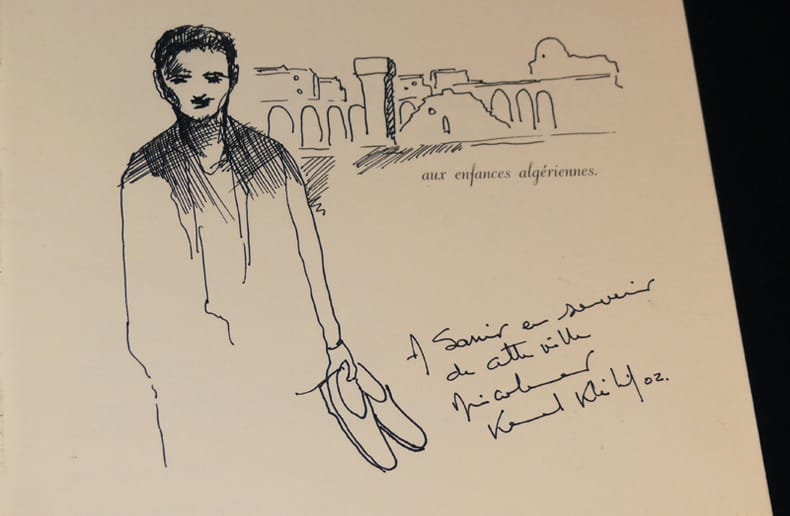 aux enfances algériennes.
A Samir en souvenir
de cette ville
Amicalement
Kamel Khélif 02.